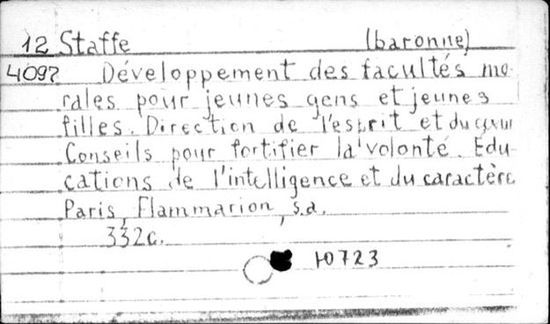 12 Staffe (baronne)
4092 Développement des facultés mo-
rales pour jeunes gens et jeunes
filles. Direction de l'esprit et du cœur
Conseils pour fortifier la volonté. Edu-
cations de l'intelligence et du caractère
Paris, Flammarion, s.d.
332c.
10723